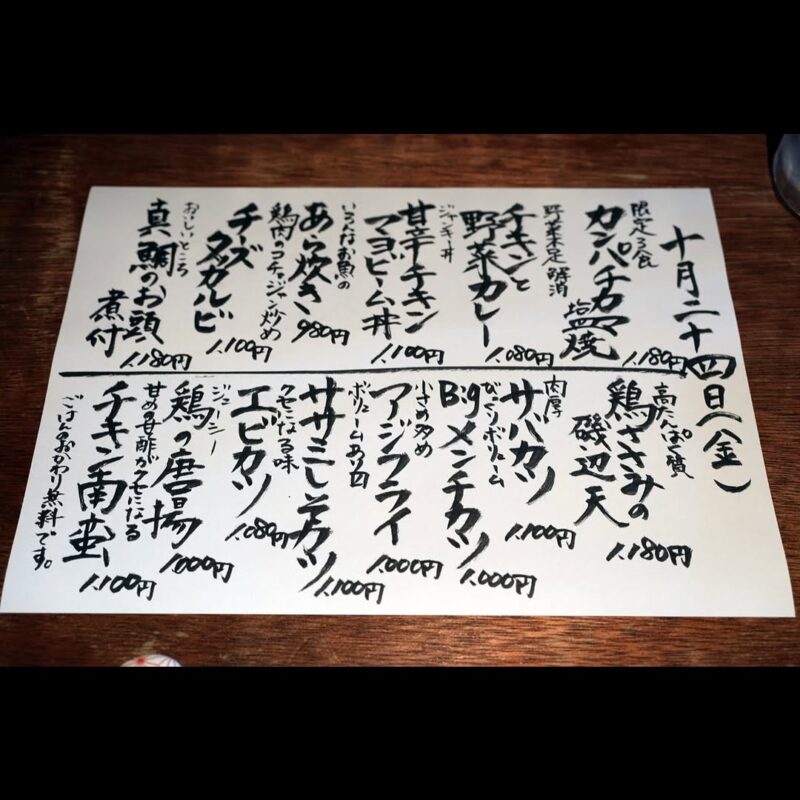 十月二十四日(金)
限定3食
カンパチカマ
塩焼
1,180円
野菜不足解消
チキンと
野菜カレー
1,080円
ジャンキー丼
甘辛チキン
マヨビーム丼
1,100円
いろんなお魚の
あら炊き
980円
鶏肉のコチュジャン炒め
チーズ
タッカルビ
1,100円
おいしいところ
真鯛のお頭
煮付
1,180円
高たんぱく質
鶏ささみの
磯辺天
1,180円
肉厚
サバカツ
1,100円
びっくりボリューム
Bigメンチカツ
1,000円
小さめ多め
アジフライ
1,000円
ボリュームあり
ササミしそカツ
1,100円
クセになる味
エビカツ
1,080円
ジューシー
鶏の唐揚
1,000円
甘めの甘酢がクセになる
チキン南蛮
1,100円
ごはんのおかわり無料です。